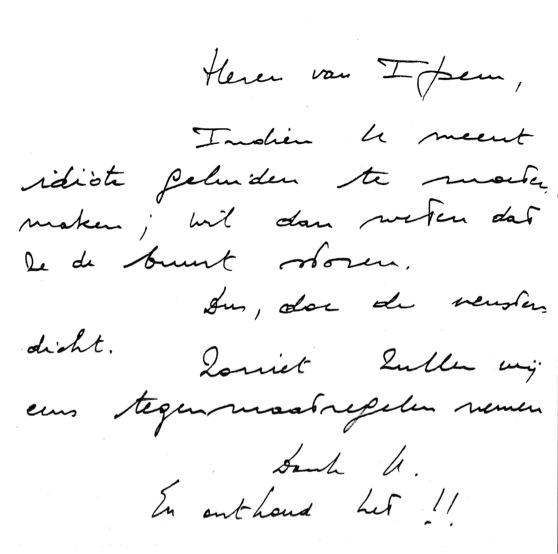 Heren van Ipem,
Indien U meent
idiote geluiden te moeten
maken; wil dan weten dat
ze de buurt storen.
Dus, doe de vensters
dicht.
Zoniet zullen wij
eens tegenmaatregelen nemen
Dank U.
En onthoud het !!